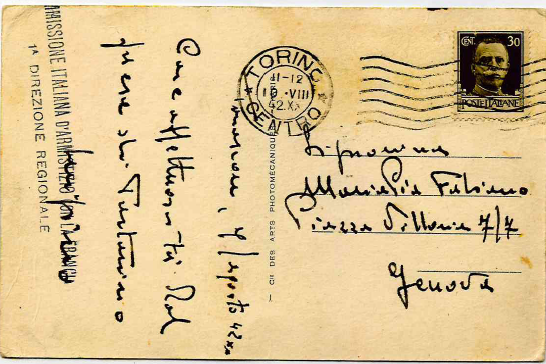 COMMISSIONE ITALIANA D'ARMISTIZIO CON LA FRANCIA
1A DIREZIONE REGIONALE
Care affettuosità dal
4 agosto 42 XX
— CIE DES ARTS PHOTOMÉCANIQUES
TORINO
11-12
10.VIII
42.XX
CENTRO
CENT. 30
POSTE ITALIANE
Signorina
Maria Pia Fabiano
Piazza Vittoria 7/7
Genova